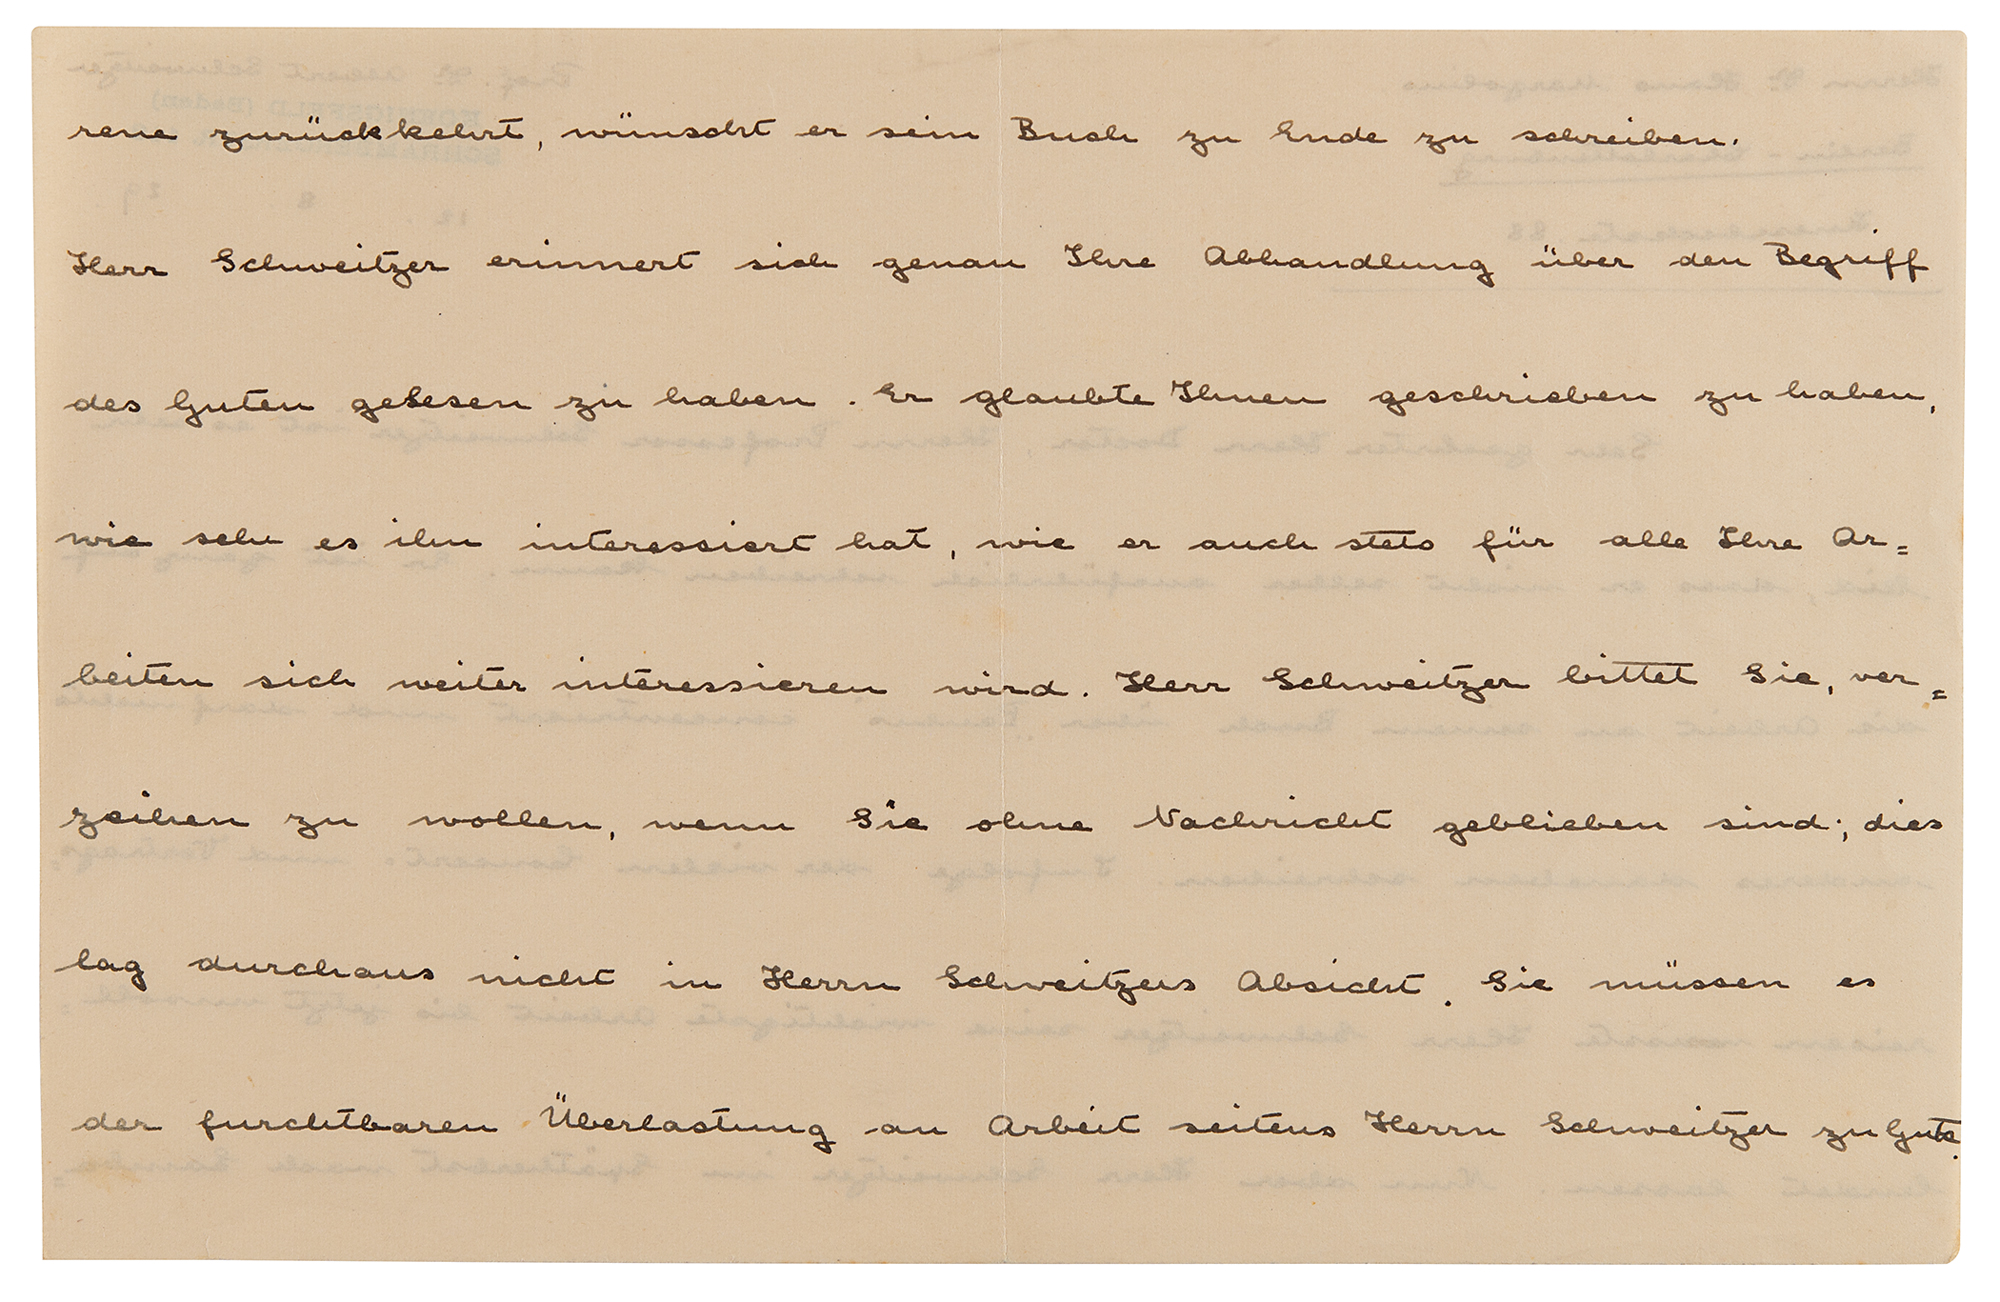 rene zurückkehrt, wünscht er sein Buch zu Ende zu schreiben.
Herr Schweitzer erinnert sich genau Ihre Abhandlung über den Begriff
des Guten gelesen zu haben. Er glaubte Ihnen geschrieben zu haben,
wie sehr es ihn interessiert hat, wie er auch stets für alle Ihre Ar=
beiten sich weiter interessieren wird. Herr Schweitzer bittet Sie, ver=
zeihen zu wollen, wenn Sie ohne Nachricht geblieben sind; dies
lag durchaus nicht in Herrn Schweitzers Absicht. Sie müssen es
der furchtbaren Überlastung an Arbeit seitens Herrn Schweitzer zu Gute.